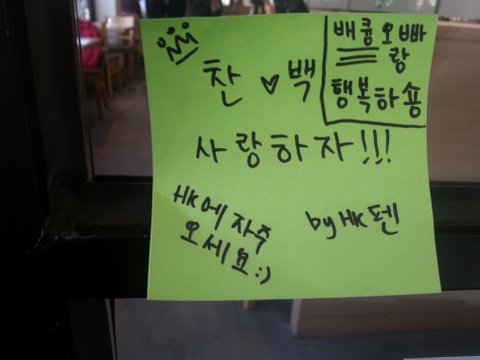 찬 ♥ 백
배큥오빠
랑
행복하숑
사랑하자!!!
HK에 자주
오세요:)
by HK펜